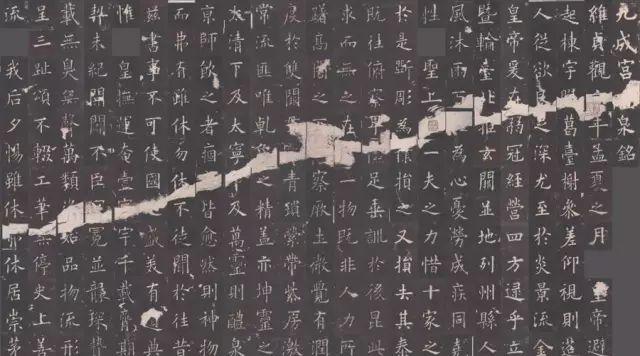 九成宮 泉銘
維貞觀 年孟夏之月 皇帝避
起棟宇 葛臺榭參差仰視則
人從欲 之深尤至於炎景流金
皇帝爰在弱冠經營四方逮乎立
暨輪臺北拒玄闕並地列州縣人
風沐雨 為心憂勞成疾同
性 聖上 一夫之力惜十家之
於是斲彫為樸損之又損去其泰
既往俯察卑儉足垂訓於後昆此
求而無之在 一物既非人力所
躡高閣之下 察厥土微覺有潤
於雙闕 青瑣縈帶紫房激
常流匪唯乾象之精蓋亦坤靈之
太清下及太寧下及萬靈則醴泉
京師飲之者痼 皆愈然則神物
而弗有雖休勿休不徒聞於往昔
兹書事不可使國之盛美有遺典
惟 皇撫運奄壹寰宇千載膺期
未紀開闢不臣冠冕並襲琛贄
載無臭 萬類資始品物流形
呈二趾頌不輟工筆無停史上善
流 我后夕惕雖休弗休居崇茅